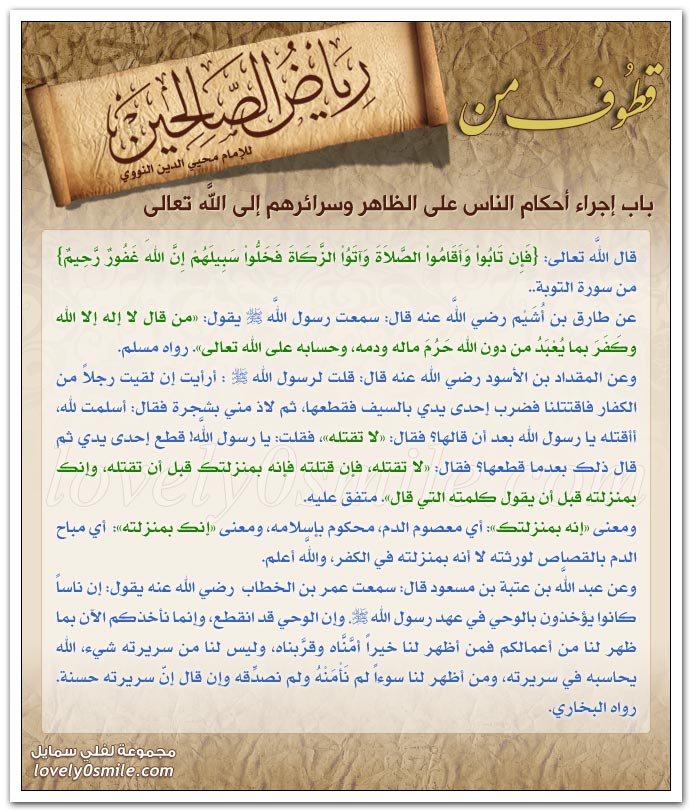 قطوف من
رياض الصالحين
للإمام محيي الدين النووي
باب إجراء أحكام الناس على الظاهر وسرائرهم إلى الله تعالى
قال الله تعالى: {فَإِن تَابُواْ وَأَقَامُواْ الصَّلاَةَ وَآتَوُاْ الزَّكَاةَ فَخَلُّواْ سَبِيلَهُمْ إِنَّ اللهَ غَفُورٌ رَّحِيمٌ}
من سورة التوبة..
عن طارق بن أُشَيْم رضي الله عنه قال: سمعت رسول الله ﷺ يقول: «من قال لا إله إلا الله
وكَفَرَ بما يُعْبَدُ من دون الله حَرُمَ ماله ودمه، وحسابه على الله تعالى». رواه مسلم.
وعن المقداد بن الأسود رضي الله عنه قال: قلت لرسول الله ﷺ : أرأيت إن لقيت رجلاً من
الكفار فاقتتلنا فضرب إحدى يدي بالسيف فقطعها، ثم لاذ مني بشجرة فقال: أسلمت لله،
أأقتله يا رسول الله بعد أن قالها؟ فقال: «لا تقتله»، فقلت: يا رسول الله! قطع إحدى يدي ثم
قال ذلك بعدما قطعها؟ فقال: «لا تقتله، فإن قتلته فإنه بمنزلتك قبل أن تقتله، وإنك
بمنزلته قبل أن يقول كلمته التي قال». متفق عليه.
ومعنى «إنه بمنزلتك»: أي معصوم الدم، محكوم بإسلامه، ومعنى «إنك بمنزلته»: أي مباح
الدم بالقصاص لورثته لا أنه بمنزلته في الكفر، والله أعلم.
وعن عبد الله بن عتبة بن مسعود قال: سمعت عمر بن الخطاب رضي الله عنه يقول: إن ناساً
كانوا يؤخذون بالوحي في عهد رسول الله ﷺ، وإن الوحي قد انقطع، وإنما نأخذكم الآن بما
ظهر لنا من أعمالكم فمن أظهر لنا خيراً أمَّنَّاه وقرَّبناه، وليس لنا من سريرته شيء، الله
يحاسبه في سريرته، ومن أظهر لنا سوءاً لم نَأْمَنْهُ ولم نصدِّقه وإن قال إنّ سريرته حسنة.
رواه البخاري.
lovely0smile.com
مجموعة لفلي سمايل
lovely0smile.com